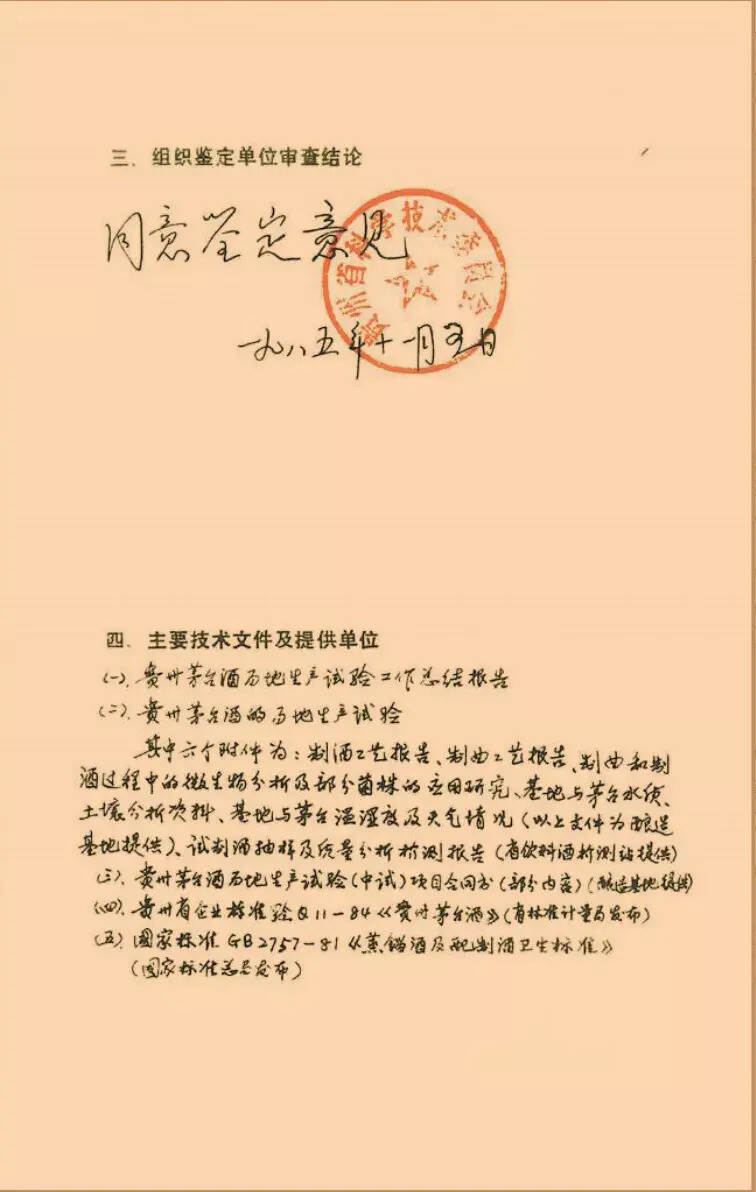 三、组织鉴定单位审查结论
同意鉴定意见
贵州省科学技术委员会
一九八五年十一月五日
四、主要技术文件及提供单位
(一)、贵州茅台酒易地生产试验工作总结报告
(二)、贵州茅台酒的易地生产试验
其中六个附件为：制酒工艺报告、制曲工艺报告、制曲和制
酒过程中的微生物分析及部分菌株的应用研究、基地与茅台水质、
土壤分析资料、基地与茅台温湿度及天气情况(以上文件为酿造
基地提供)、试制酒抽样及质量分析检测报告(省饮料酒检测站提供)
(三)、贵州茅台酒易地生产试验(中试)项目合同书(部分内容)(酿造基地提供)
(四)、贵州省企业标准黔Q11-84《贵州茅台酒》(省标准计量局发布)
(五)、国家标准GB2757-81《蒸馏酒及配制酒卫生标准》
(国家标准总局发布)